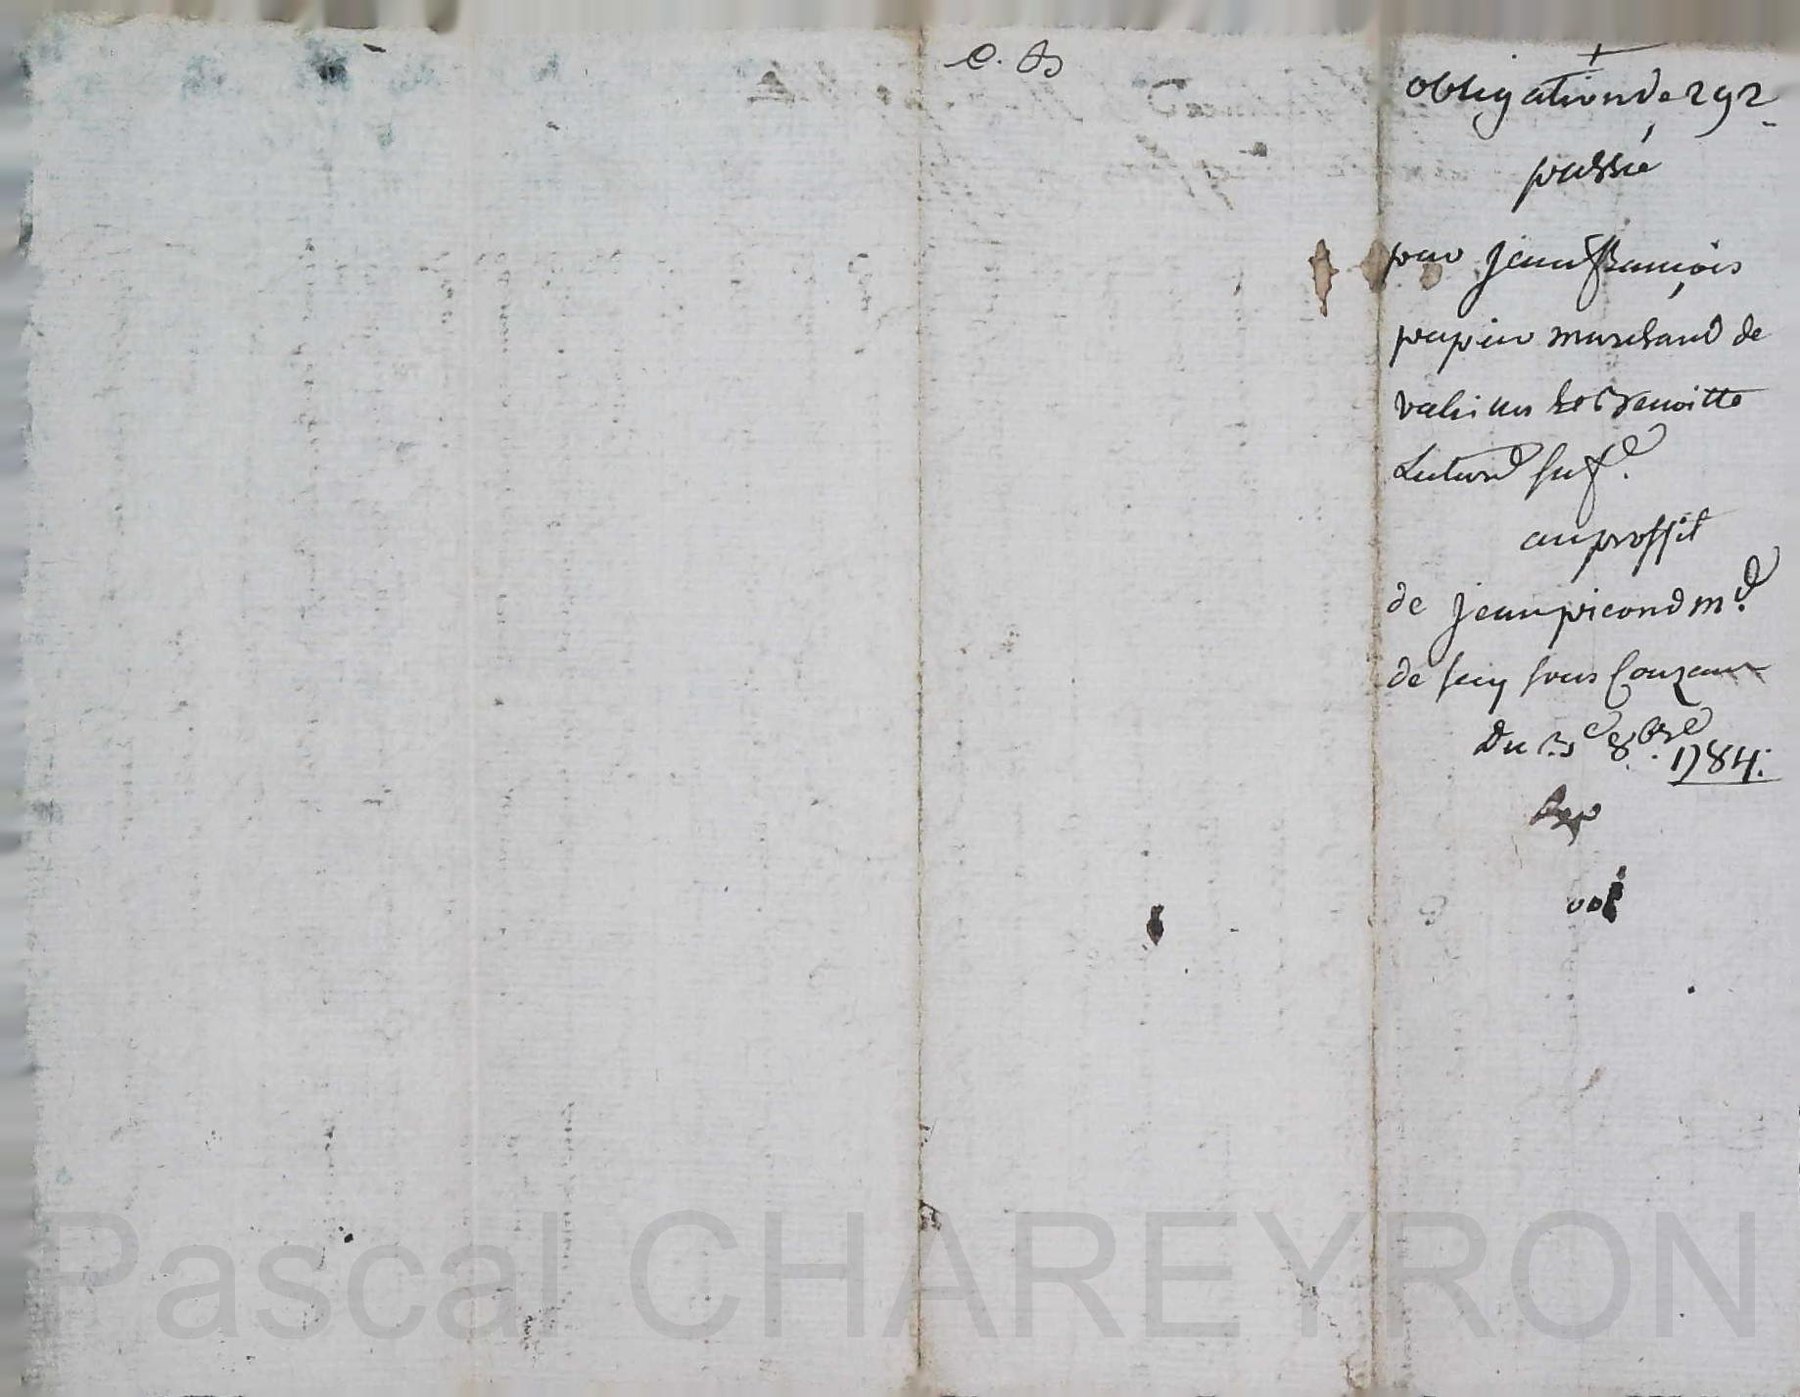 e.
obligation de 292
passée
par jean françois
papin marchand de
et Benoitte
sa f.e
au proffit
de jean picond m.d
de sous Couzan
Du 3e 8.bre 1784.
Pascal CHAREYRON